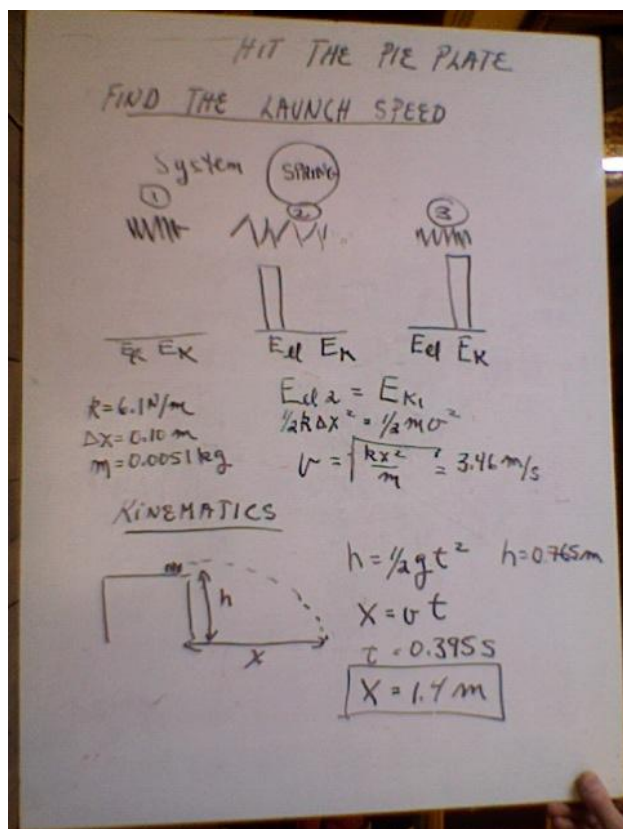 HIT THE PIE PLATE
FIND THE LAUNCH SPEED
System
SPRING
1 2 3
EK EK Eel EK Eel EK
k=6.1N/m
Δx=0.10 m
m=0.0051kg
Eel2 = EK1
1/2kΔx² = 1/2mv²
v = √(kx²/m) = 3.46 m/s
KINEMATICS
h
x
h=1/2gt² h=0.765m
x=vt
t=0.395s
x=1.4m